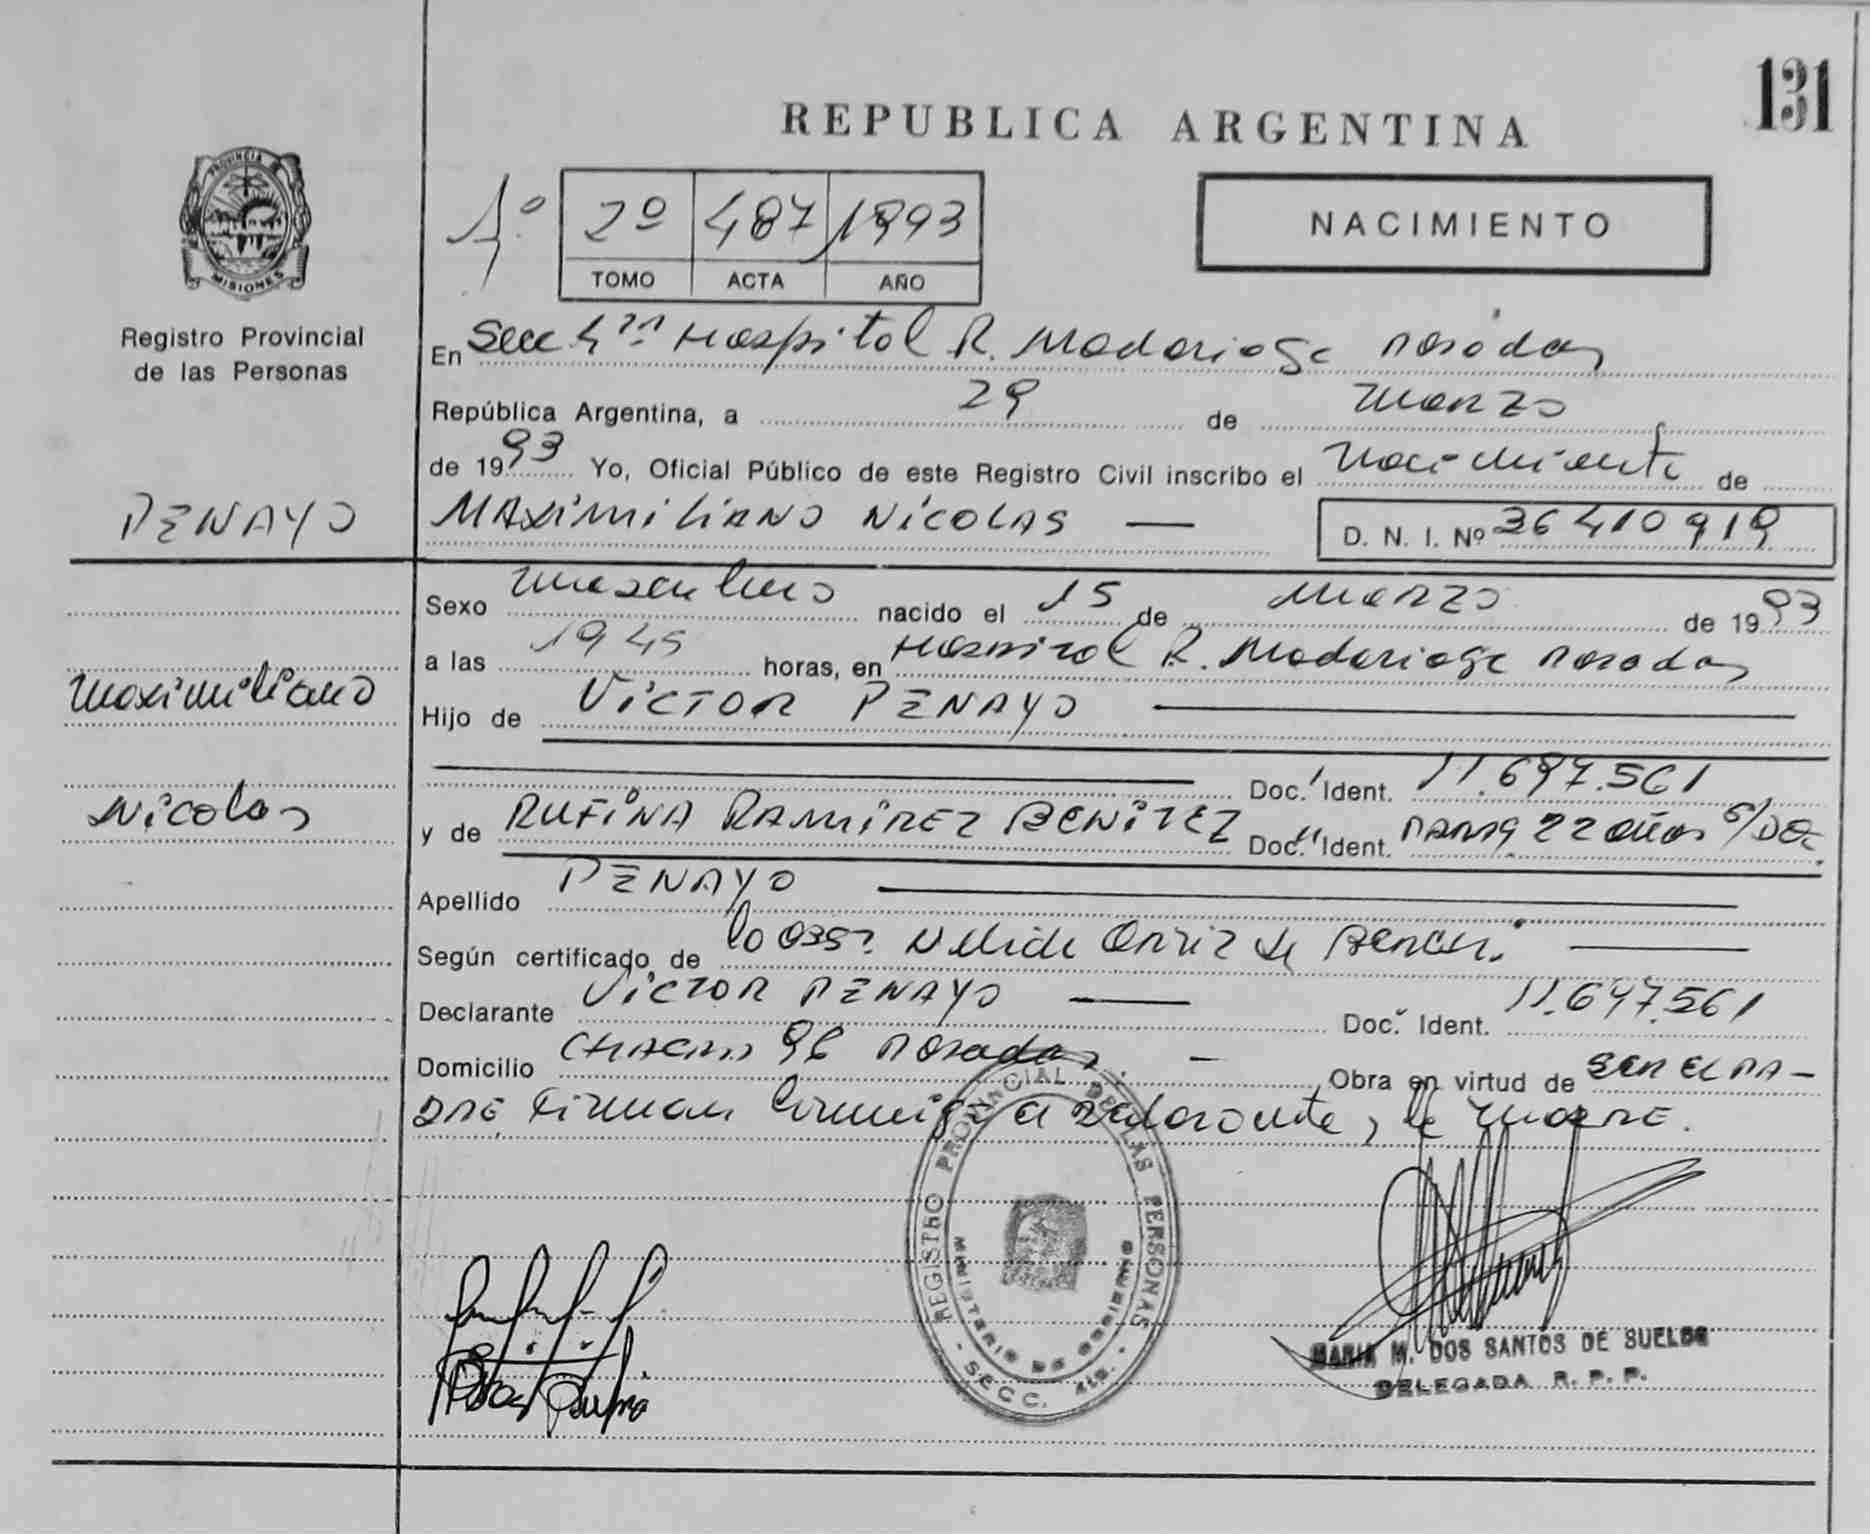 131
REPUBLICA ARGENTINA
PROVINCIA DE
MISIONES
Registro Provincial
de las Personas
1º 2º 487 1993
TOMO ACTA AÑO
NACIMIENTO
En Secc 4ta Hospital R. Madariaga Posadas
República Argentina, a 29 de Marzo
de 1993 Yo, Oficial Público de este Registro Civil inscribo el Nacimiento de
PENAYO
MAXIMILIANO NICOLAS — D. N. I. Nº 36410919
Sexo masculino nacido el 15 de Marzo de 1993
a las 19 45 horas, en Hospital R. Madariaga Posadas
Maximiliano
Hijo de VICTOR PENAYO
Doc. Ident. 11.697.561
Nicolas
y de RUFINA RAMIREZ BENITEZ Doc. Ident. 22 años s/Doc.
Apellido PENAYO
Según certificado de la Obst Nelida Ortiz de
Declarante VICTOR PENAYO — Doc. Ident. 11.697.561
Domicilio CHACRA 96 Posadas — Obra en virtud de SER EL PA-
DRE Firman conmigo el declarante y la MADRE.
REGISTRO PROVINCIAL DE LAS PERSONAS
MINISTERIO DE GOBIERNO
- SECC. 4ta. -
MARIA M. DOS SANTOS DE SUELDO
DELEGADA R. P. P.